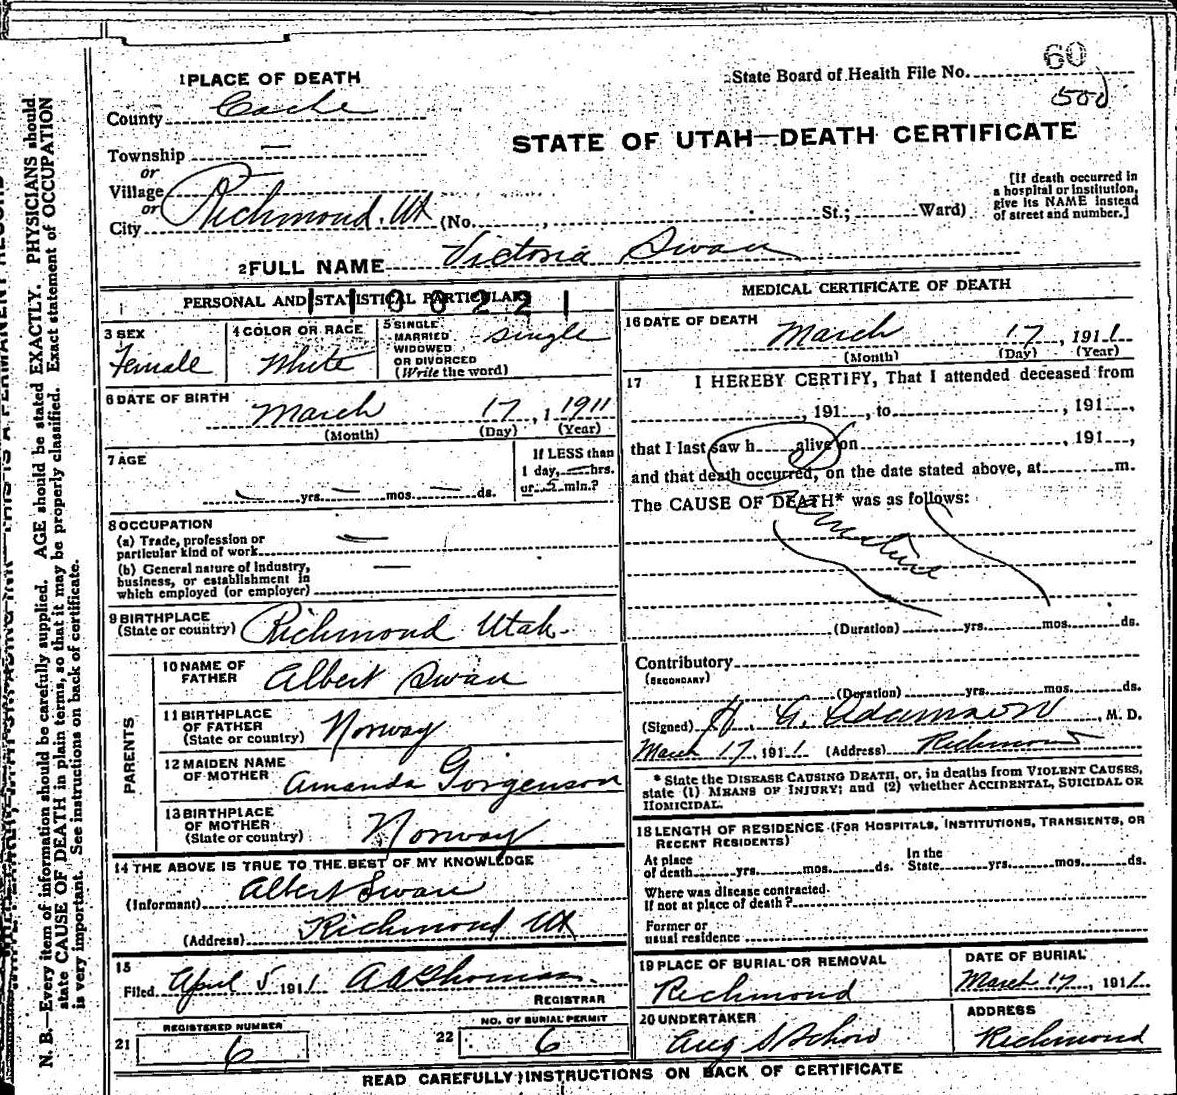 60
State Board of Health File No.
500
1 PLACE OF DEATH
County Cache
STATE OF UTAH—DEATH CERTIFICATE
Township —
or
Village
or
City Richmond. Ut (No. , St.; Ward)
[If death occurred in
a hospital or institution,
give its NAME instead
of street and number.]
2 FULL NAME Victoria Swan
PERSONAL AND STATISTICAL PARTICULARS
1100221
3 SEX
Female
4 COLOR OR RACE
White
5 SINGLE
MARRIED
WIDOWED
OR DIVORCED
(Write the word)
Single
6 DATE OF BIRTH
March 17, 1911
(Month) (Day) (Year)
7 AGE
— yrs. — mos. — ds.
If LESS than
1 day, — hrs.
or 5 min.?
8 OCCUPATION
(a) Trade, profession or
particular kind of work —
(b) General nature of industry,
business, or establishment in
which employed (or employer) —
9 BIRTHPLACE
(State or country) Richmond Utah.
PARENTS
10 NAME OF
FATHER Albert Swan
11 BIRTHPLACE
OF FATHER
(State or country) Norway
12 MAIDEN NAME
OF MOTHER Amanda Gorgenson
13 BIRTHPLACE
OF MOTHER
(State or country) Norway
14 THE ABOVE IS TRUE TO THE BEST OF MY KNOWLEDGE
(Informant) Albert Swan
(Address) Richmond Ut
15
Filed April 5 1911 Thomas
REGISTRAR
REGISTERED NUMBER
21 6
NO. OF BURIAL PERMIT
22 6
MEDICAL CERTIFICATE OF DEATH
16 DATE OF DEATH
March 17, 1911
(Month) (Day) (Year)
17 I HEREBY CERTIFY, That I attended deceased from
, 191 , to , 191 ,
that I last saw h alive on , 191 ,
and that death occurred, on the date stated above, at m.
The CAUSE OF DEATH* was as follows:
(Duration) yrs. mos. ds.
Contributory
(SECONDARY)
(Duration) yrs. mos. ds.
(Signed) G. Adamson, M. D.
March 17, 1911 (Address) Richmond
* State the DISEASE CAUSING DEATH, or, in deaths from VIOLENT CAUSES,
state (1) MEANS OF INJURY; and (2) whether ACCIDENTAL, SUICIDAL OR
HOMICIDAL.
18 LENGTH OF RESIDENCE (FOR HOSPITALS, INSTITUTIONS, TRANSIENTS, OR
RECENT RESIDENTS)
At place
of death yrs. mos. ds.
In the
State yrs. mos. ds.
Where was disease contracted.
If not at place of death?
Former or
usual residence
19 PLACE OF BURIAL OR REMOVAL
Richmond
DATE OF BURIAL
March 17, 1911
20 UNDERTAKER
Aug S Schow
ADDRESS
Richmond
READ CAREFULLY INSTRUCTIONS ON BACK OF CERTIFICATE
N. B.—Every item of information should be carefully supplied. AGE should be stated EXACTLY. PHYSICIANS should
state CAUSE OF DEATH in plain terms, so that it may be properly classified. Exact statement of OCCUPATION
is very important. See instructions on back of certificate.